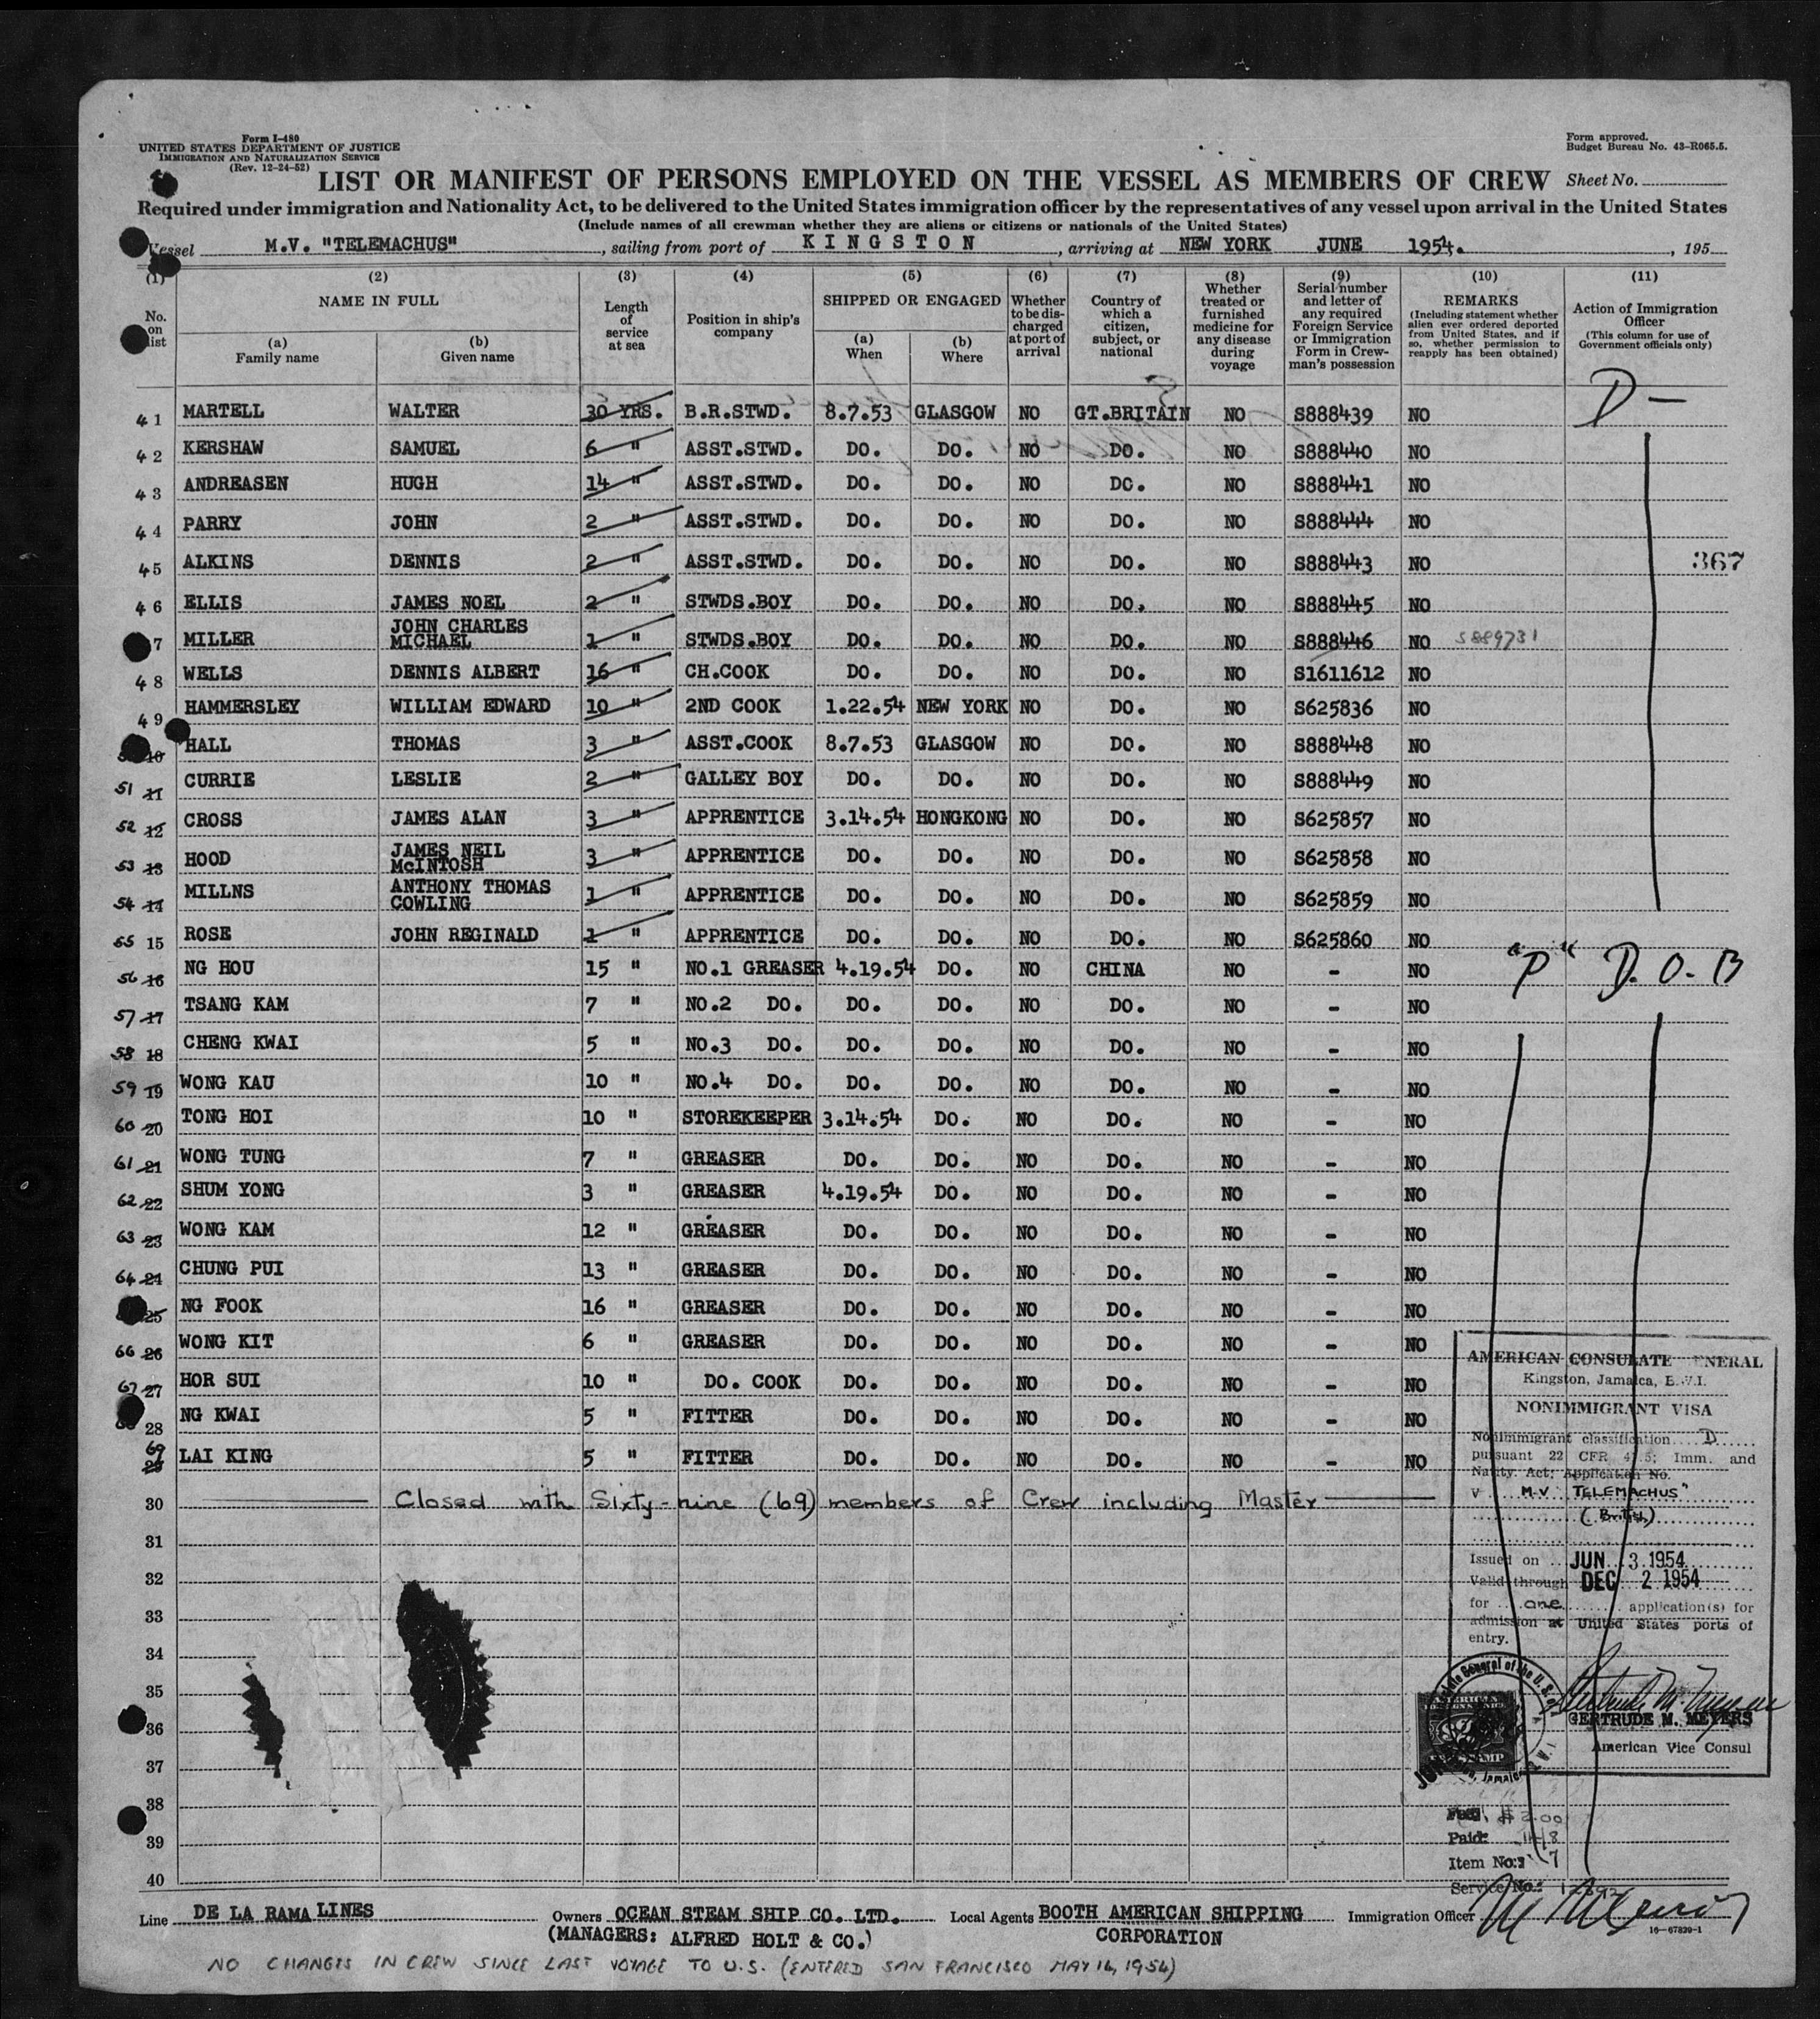 Form I-480
UNITED STATES DEPARTMENT OF JUSTICE
IMMIGRATION AND NATURALIZATION SERVICE
(Rev. 12-24-52)
Form approved.
Budget Bureau No. 43-R065.5.
LIST OR MANIFEST OF PERSONS EMPLOYED ON THE VESSEL AS MEMBERS OF CREW
Sheet No.
Required under immigration and Nationality Act, to be delivered to the United States immigration officer by the representatives of any vessel upon arrival in the United States
(Include names of all crewman whether they are aliens or citizens or nationals of the United States)
Vessel M.V. "TELEMACHUS", sailing from port of KINGSTON, arriving at NEW YORK JUNE 1954., 195
(1) No. on list
(2) NAME IN FULL
(a) Family name
(b) Given name
(3) Length of service at sea
(4) Position in ship's company
(5) SHIPPED OR ENGAGED
(a) When
(b) Where
(6) Whether to be discharged at port of arrival
(7) Country of which a citizen, subject, or national
(8) Whether treated or furnished medicine for any disease during voyage
(9) Serial number and letter of any required Foreign Service or Immigration Form in Crewman's possession
(10) REMARKS (Including statement whether alien ever ordered deported from United States, and if so, whether permission to reapply has been obtained)
(11) Action of Immigration Officer (This column for use of Government officials only)
41 MARTELL WALTER 30 YRS. B.R.STWD. 8.7.53 GLASGOW NO GT.BRITAIN NO S888439 NO D-
42 KERSHAW SAMUEL 6 " ASST.STWD. DO. DO. NO DO. NO S888440 NO
43 ANDREASEN HUGH 14 " ASST.STWD. DO. DO. NO DO. NO S888441 NO
44 PARRY JOHN 2 " ASST.STWD. DO. DO. NO DO. NO S888444 NO
45 ALKINS DENNIS 2 " ASST.STWD. DO. DO. NO DO. NO S888443 NO 367
46 ELLIS JAMES NOEL 2 " STWDS.BOY DO. DO. NO DO. NO S888445 NO
7 MILLER JOHN CHARLES MICHAEL 1 " STWDS.BOY DO. DO. NO DO. NO S888446 NO S889731
48 WELLS DENNIS ALBERT 16 " CH.COOK DO. DO. NO DO. NO S1611612 NO
49 HAMMERSLEY WILLIAM EDWARD 10 " 2ND COOK 1.22.54 NEW YORK NO DO. NO S625836 NO
10 HALL THOMAS 3 " ASST.COOK 8.7.53 GLASGOW NO DO. NO S888448 NO
51 11 CURRIE LESLIE 2 " GALLEY BOY DO. DO. NO DO. NO S888449 NO
52 12 CROSS JAMES ALAN 3 " APPRENTICE 3.14.54 HONGKONG NO DO. NO S625857 NO
53 13 HOOD JAMES NEIL McINTOSH 3 " APPRENTICE DO. DO. NO DO. NO S625858 NO
54 14 MILLNS ANTHONY THOMAS COWLING 1 " APPRENTICE DO. DO. NO DO. NO S625859 NO
55 15 ROSE JOHN REGINALD 1 " APPRENTICE DO. DO. NO DO. NO S625860 NO
56 16 NG HOU 15 " NO.1 GREASER 4.19.54 DO. NO CHINA NO - NO "P" D.O.B
57 17 TSANG KAM 7 " NO.2 DO. DO. DO. NO DO. NO - NO
58 18 CHENG KWAI 5 " NO.3 DO. DO. DO. NO DO. NO - NO
59 19 WONG KAU 10 " NO.4 DO. DO. DO. NO DO. NO - NO
60 20 TONG HOI 10 " STOREKEEPER 3.14.54 DO. NO DO. NO - NO
61 21 WONG TUNG 7 " GREASER DO. DO. NO DO. NO - NO
62 22 SHUM YONG 3 " GREASER 4.19.54 DO. NO DO. NO - NO
63 23 WONG KAM 12 " GREASER DO. DO. NO DO. NO - NO
64 24 CHUNG PUI 13 " GREASER DO. DO. NO DO. NO - NO
25 NG FOOK 16 " GREASER DO. DO. NO DO. NO - NO
66 26 WONG KIT 6 " GREASER DO. DO. NO DO. NO - NO
67 27 HOR SUI 10 " DO. COOK DO. DO. NO DO. NO - NO
28 NG KWAI 5 " FITTER DO. DO. NO DO. NO - NO
69 29 LAI KING 5 " FITTER DO. DO. NO DO. NO - NO
30 Closed with Sixty-nine (69) members of Crew including Master
31
32
33
34
35
36
37
38
39
40
AMERICAN CONSULATE ENERAL
Kingston, Jamaica, B.W.I.
NONIMMIGRANT VISA
Nonimmigrant classification D
pursuant 22 CFR 41.5; Imm. and
Natity. Act; Application No.
V M-V "TELEMACHUS"
(British)
Issued on JUN 3 1954
Valid through DEC 2 1954
for one application(s) for
admission at United States ports of
entry.
GERTRUDE M. MEYERS
American Vice Consul
Fee: $2.00
Paid:
Item No: 7
Service No:
Line DE LA RAMA LINES
Owners OCEAN STEAM SHIP CO. LTD.
(MANAGERS: ALFRED HOLT & CO.)
Local Agents BOOTH AMERICAN SHIPPING
CORPORATION
Immigration Officer
16-67839-1
NO CHANGES IN CREW SINCE LAST VOYAGE TO U.S. (ENTERED SAN FRANCISCO MAY 14, 1954)